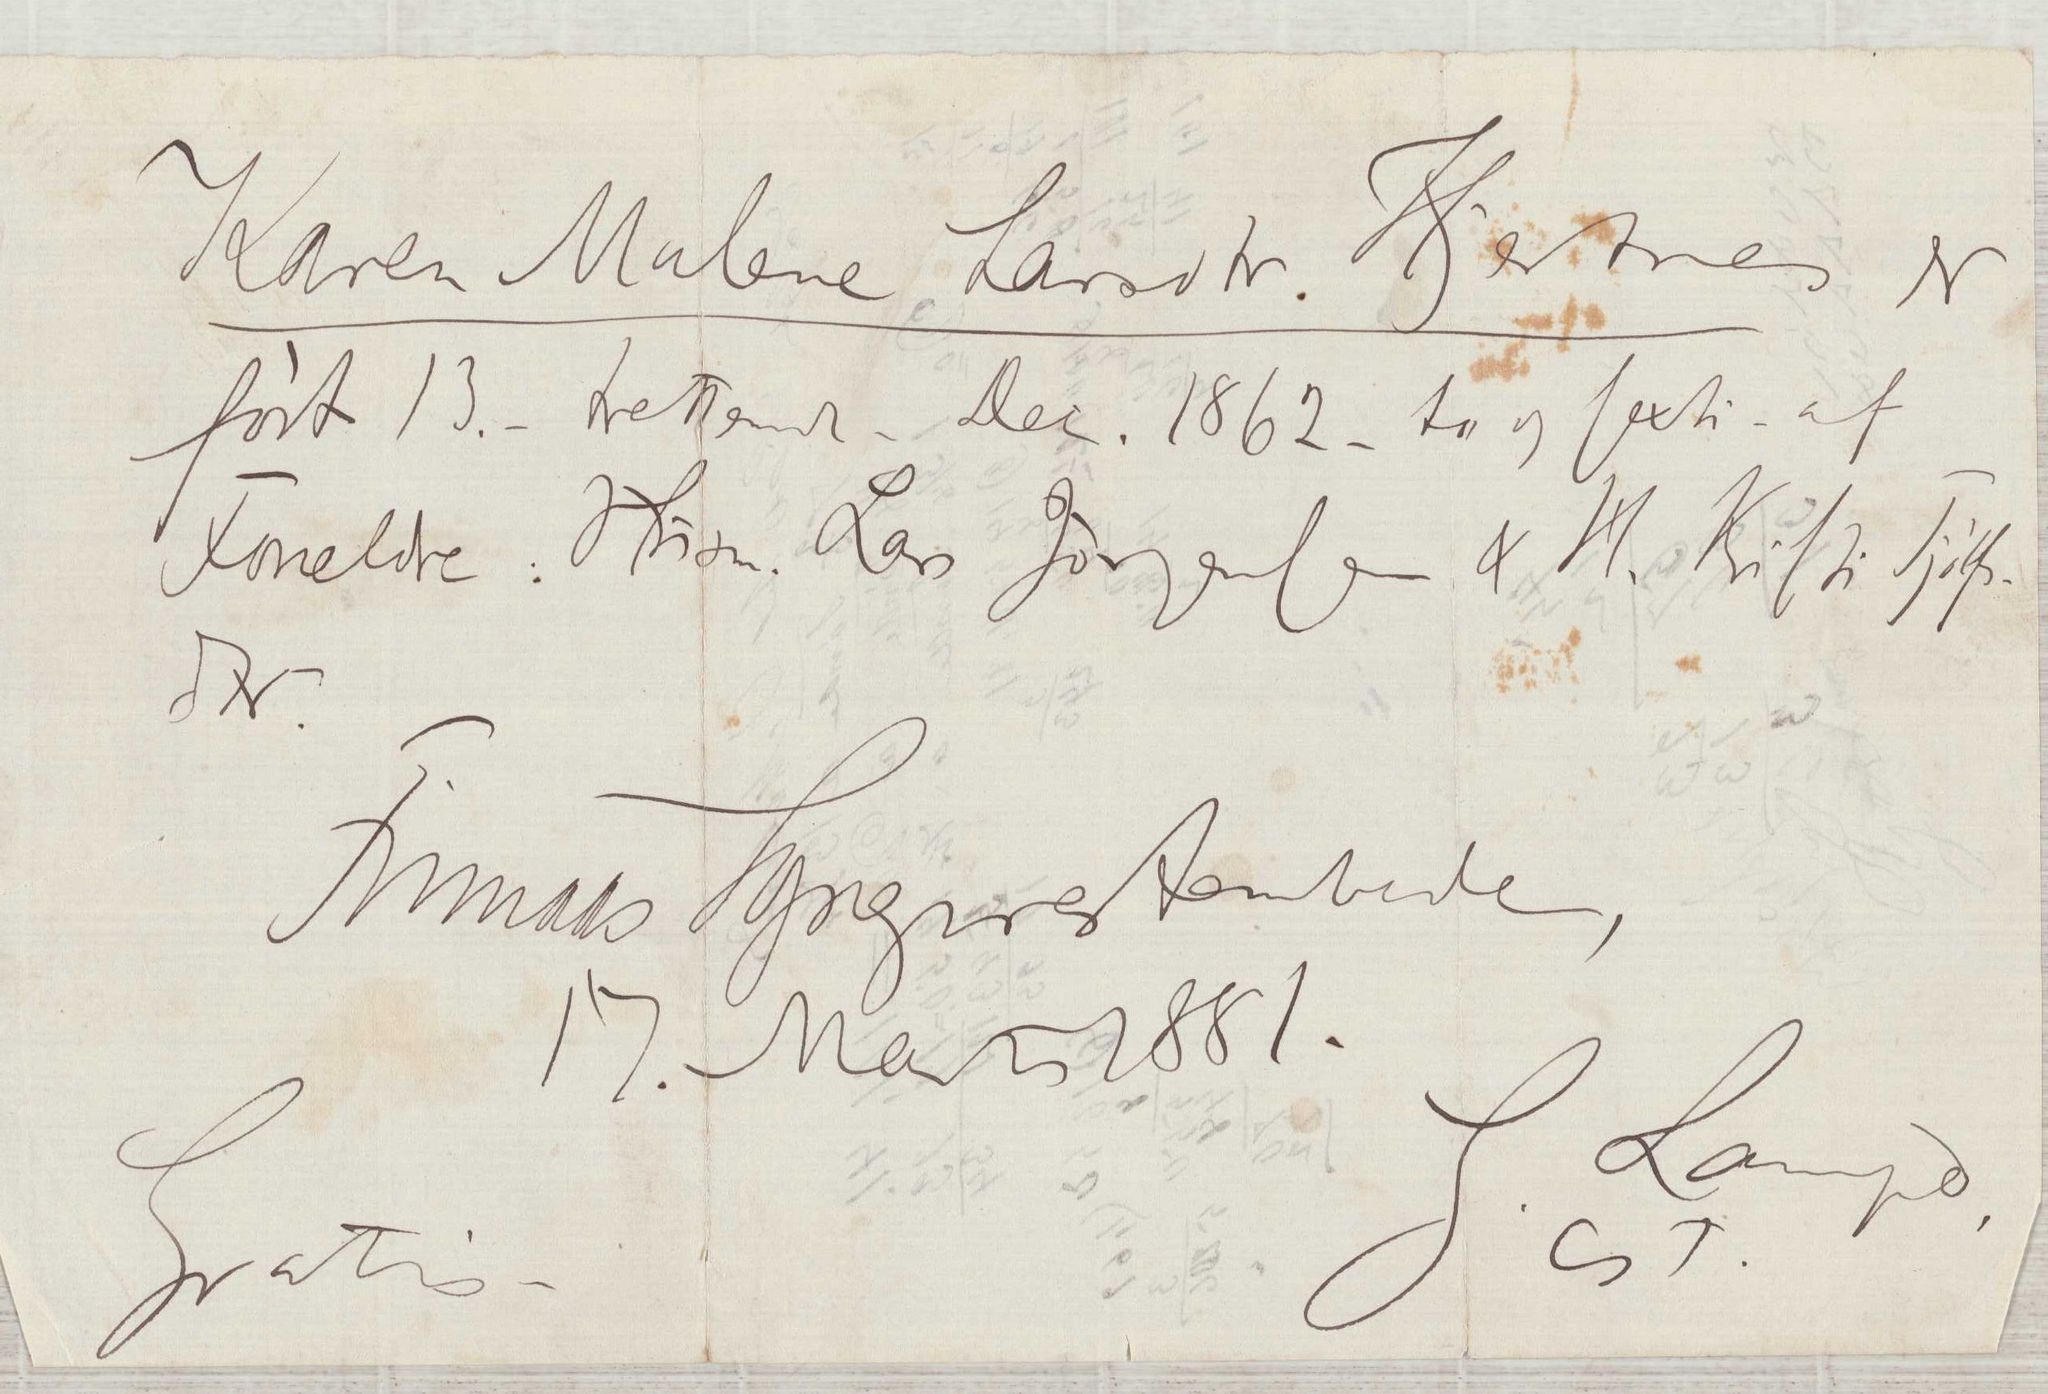 Karen Malene Larsdtr. Hjertnes er
fört 13.- trettende - Dec. 1862 - to og sexti - af
Forældre: Husm. Lars Jörgensen & H. Kristi
dtr.
Finnaas Sogneprestembede,
17. Marts 1881.
Gratis -